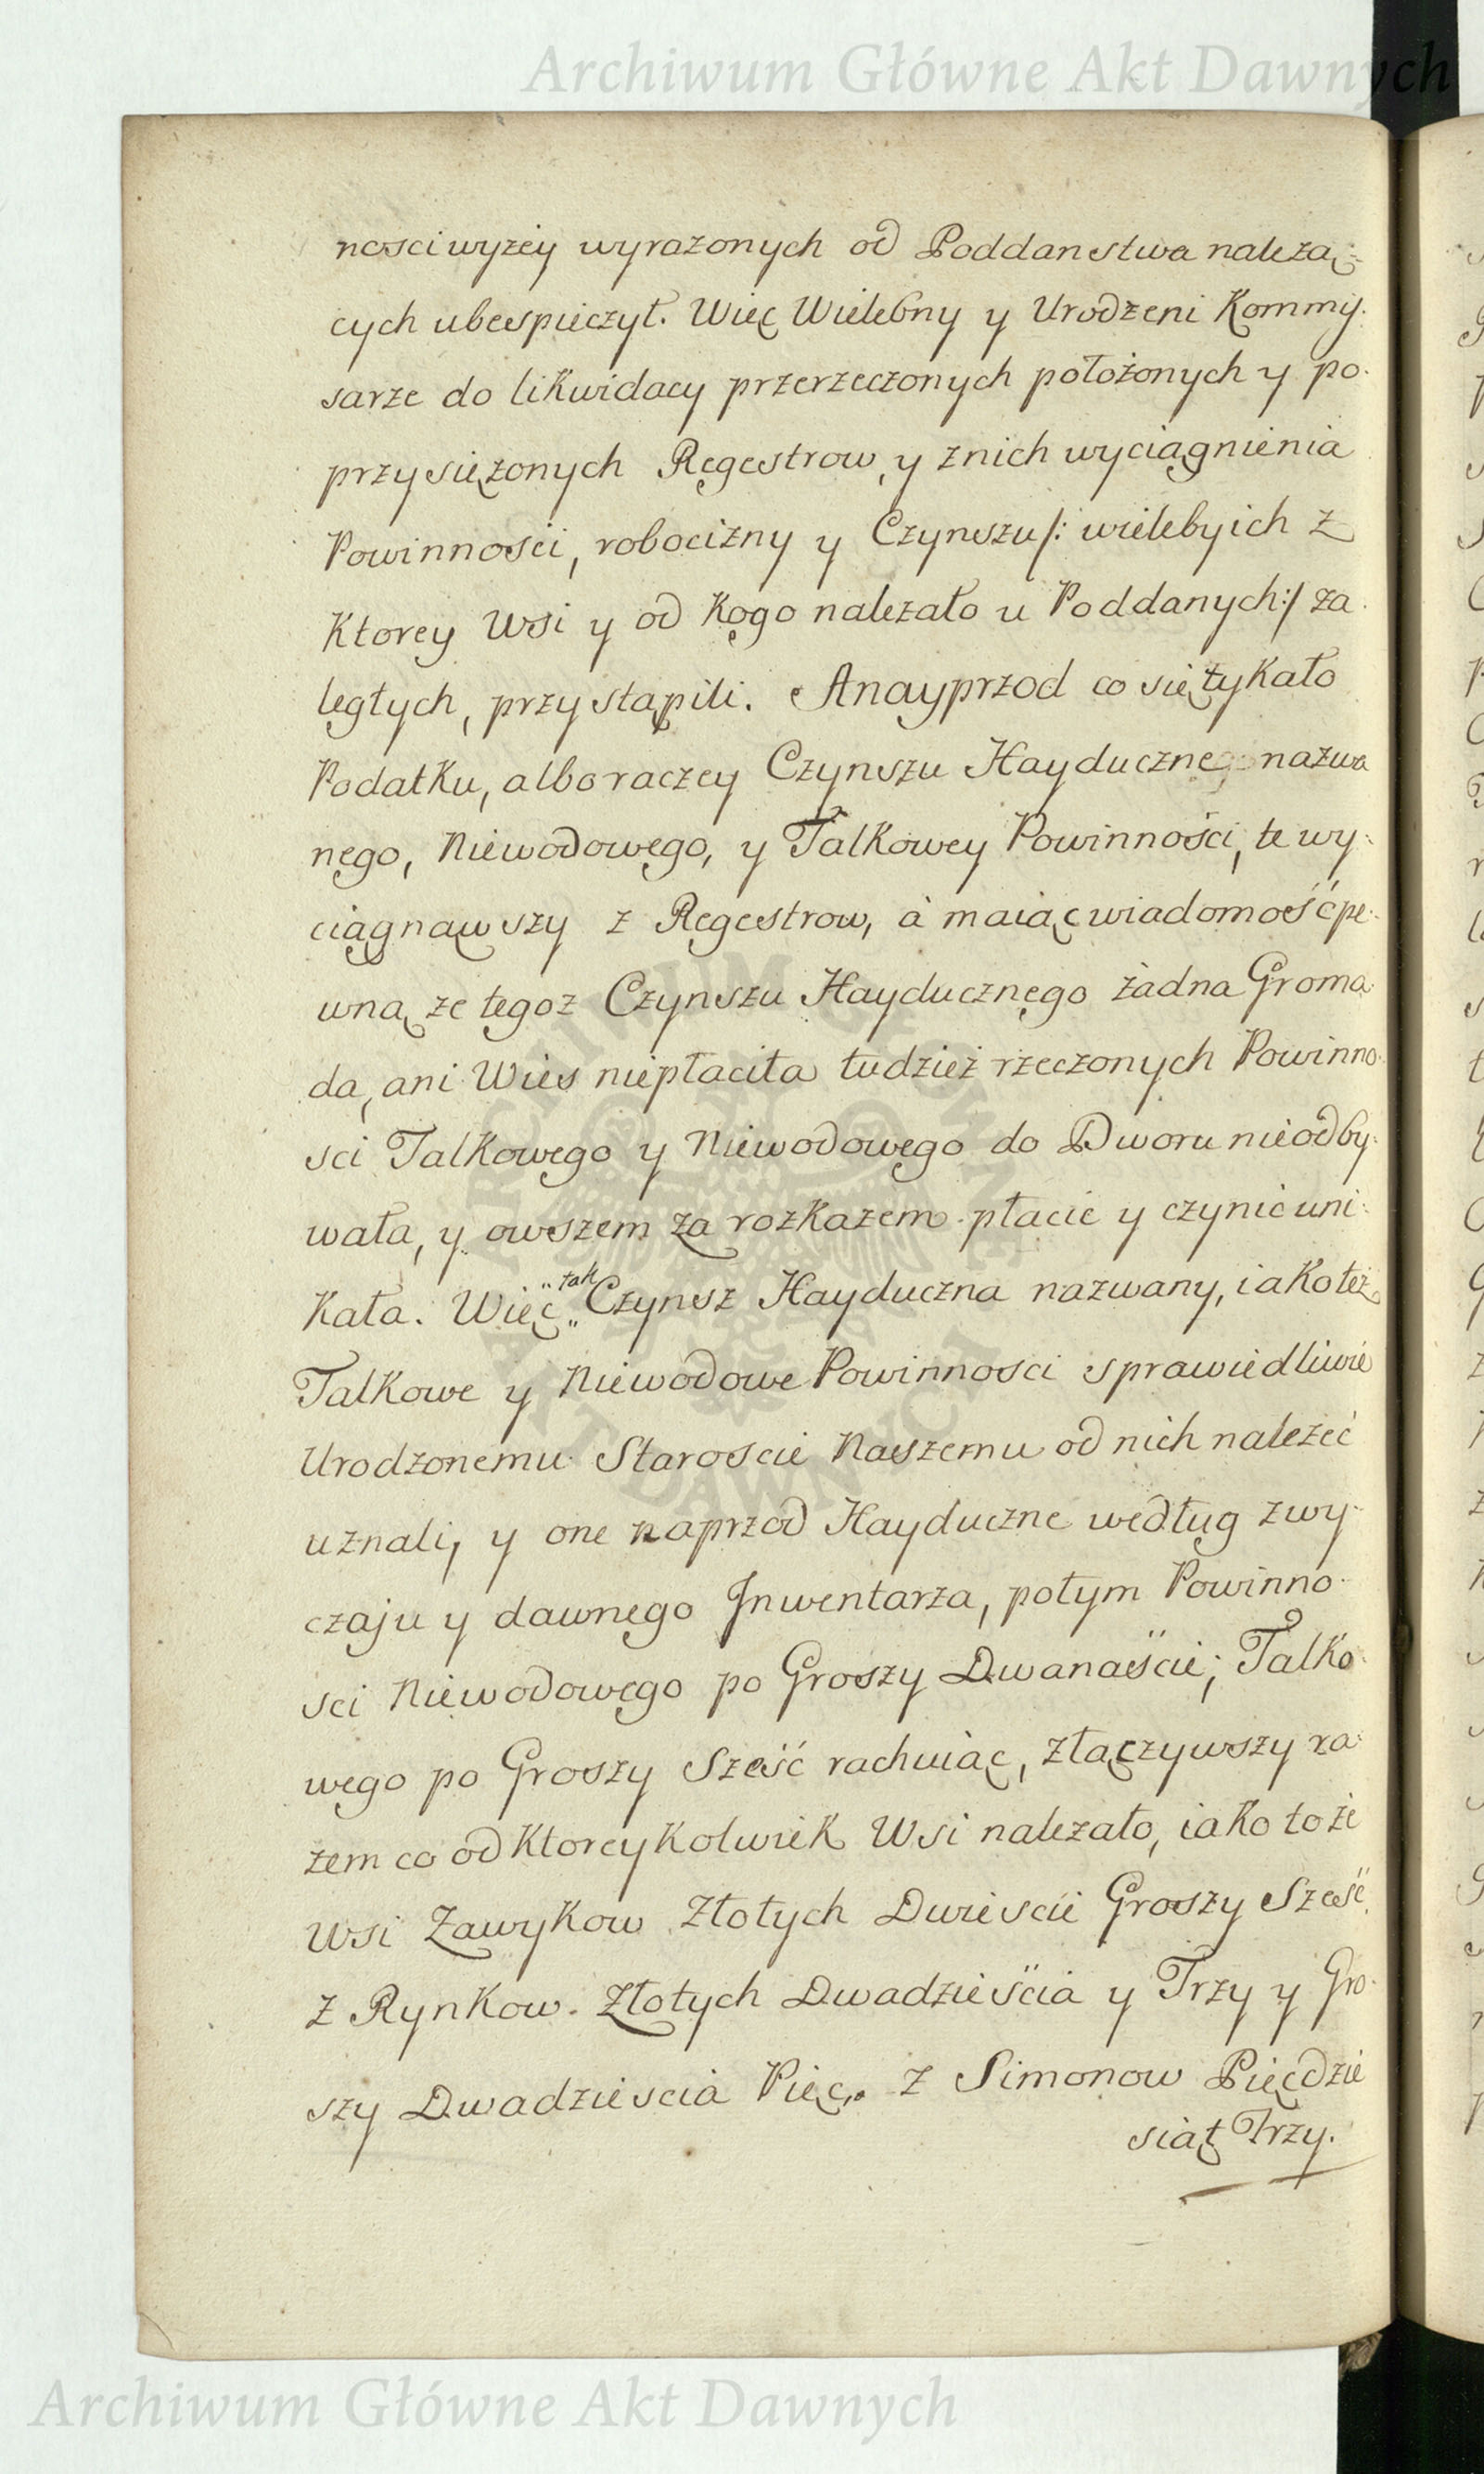 Archiwum Główne Akt Dawnych
nosci wyzey wyrazonych od Poddanstwa nalezą=
cych ubespieczył. Więc Wielebny y Urodzeni Kommy:
sarze do likwidacy przerzeczonych położonych y po:
przysiężonych Regestrow, y znich wyciągnienia
Powinnosci, robocizny y Czynszu/: wieleby ich z
Ktorey Wsi y od Kogo nalezało u Poddanych:/ za:
ległych, przystąpili. A nayprzod co się tykało
Podatku, albo raczey Czynszu Hayducznego nazwa
nego, Niewodowego, y Talkowey Powinności, te wy:
ciągnąwszy z Regestrow, à maiąc wiadomość pe:
wną ze tegoz Czynszu Hayducznego żadna Groma:
da, ani Wies niepłaciła tudzież rzeczonych Powinno:
sci Talkowego y Niewodowego do Dworu nieodby:
wała, y owszem za rozkazem płacic y czynic uni:
Kała. Więc tak Czynsz Hayduczna nazwany, iako też
Talkowe y Niewodowe Powinnosci sprawiedliwie
Urodzonemu Staroscie Naszemu od nich należeć
uznali, y one naprzod Hayduczne według zwy:
czaju y dawnego Inwentarza, potym Powinno:
sci Niewodowego po Groszy Dwanaście; Talko:
wego po Groszy Sześć rachuiąc, złączywszy ra:
zem co od Ktoreykolwiek Wsi nalezało, iako to że
Wsi Zawykow Złotych Dwiescie Groszy Sześć.
z Rynkow. Złotych Dwadzieścia y Trzy y Gro:
szy Dwadziescia Pięc,. z Simonow Pięcdzie
siąt Trzy.
Archiwum Główne Akt Dawnych
ARCHIWUM GŁÓWNE AKT DAWNYCH